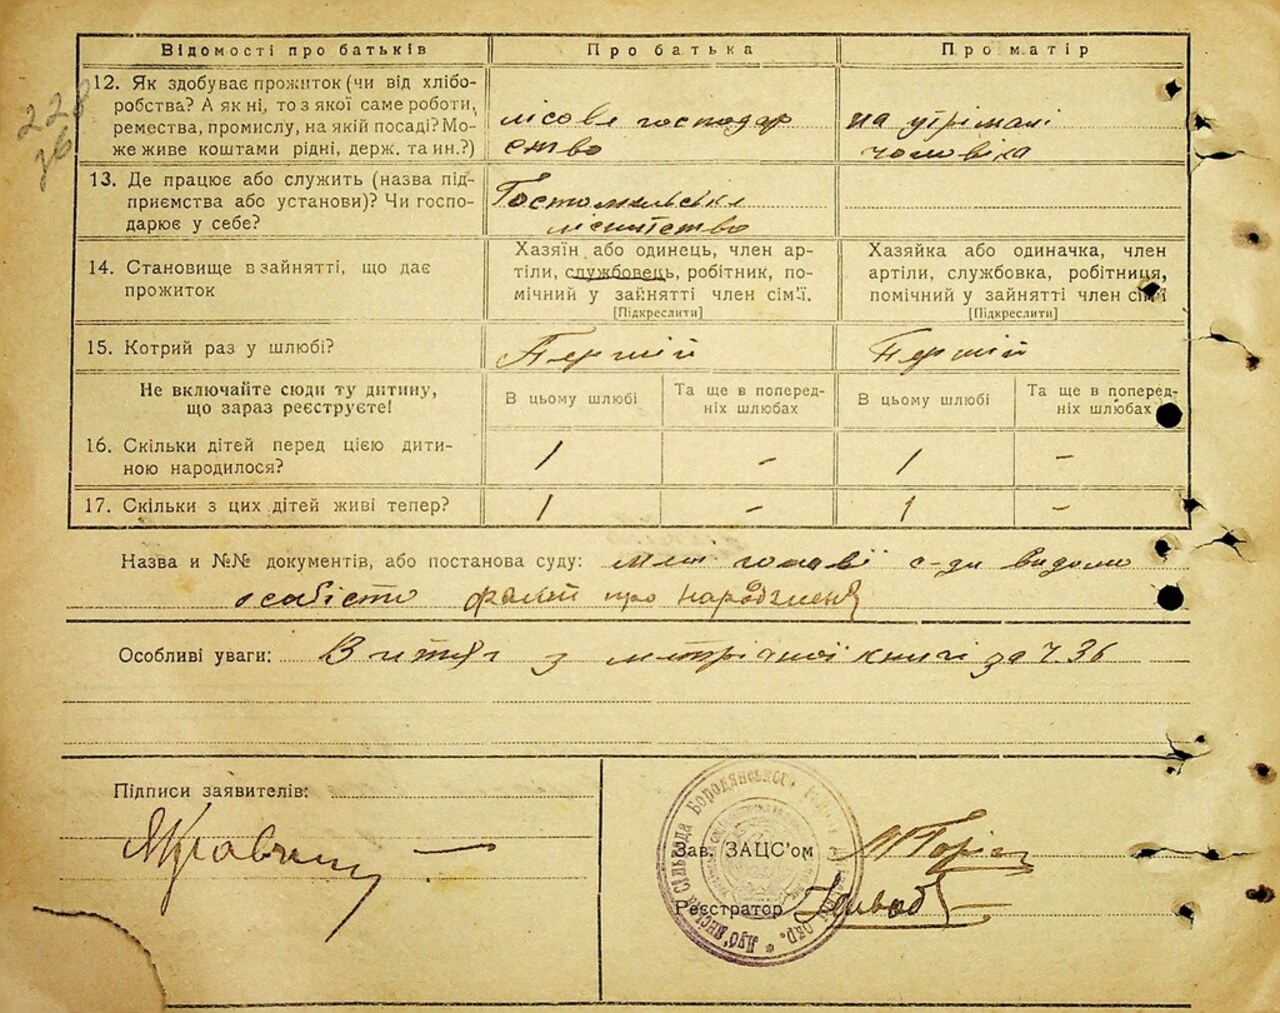 Відомості про батьків
Про батька
Про матір
12. Як здобуває прожиток (чи від хлібо-
робства? А як ні, то з якої саме роботи,
ремества, промислу, на якій посаді? Мо-
же живе коштами рідні, держ. та ин.?)
лісове господар
ство
на утрімані
чоловіка
13. Де працює або служить (назва під-
приємства або установи)? Чи госпо-
дарює у себе?
Гостомельське
лісництво
14. Становище в зайнятті, що дає
прожиток
Хазяїн або одинець, член ар-
тіли, службовець, робітник, по-
мічний у зайнятті член сім'ї.
[Підкреслити]
Хазяйка або одиначка, член
артіли, службовка, робітниця,
помічний у зайнятті член сім'ї
[Підкреслити]
15. Котрий раз у шлюбі?
Первий
Первий
Не включайте сюди ту дитину,
що зараз реєструєте!
В цьому шлюбі
Та ще в поперед-
ніх шлюбах
В цьому шлюбі
Та ще в поперед-
ніх шлюбах
16. Скільки дітей перед цією дити-
ною народилося?
1
-
1
-
17. Скільки з цих дітей живі тепер?
1
-
1
-
Назва и №№ документів, або постанова суду: голові с-ди видомо
особісто про народженя
Особливі уваги: Витяг з метрічної книгі за Ч. 36
Підписи заявителів:
Зав. ЗАЦС'ом
Реєстратор
Сільрада Бородянського
228
36